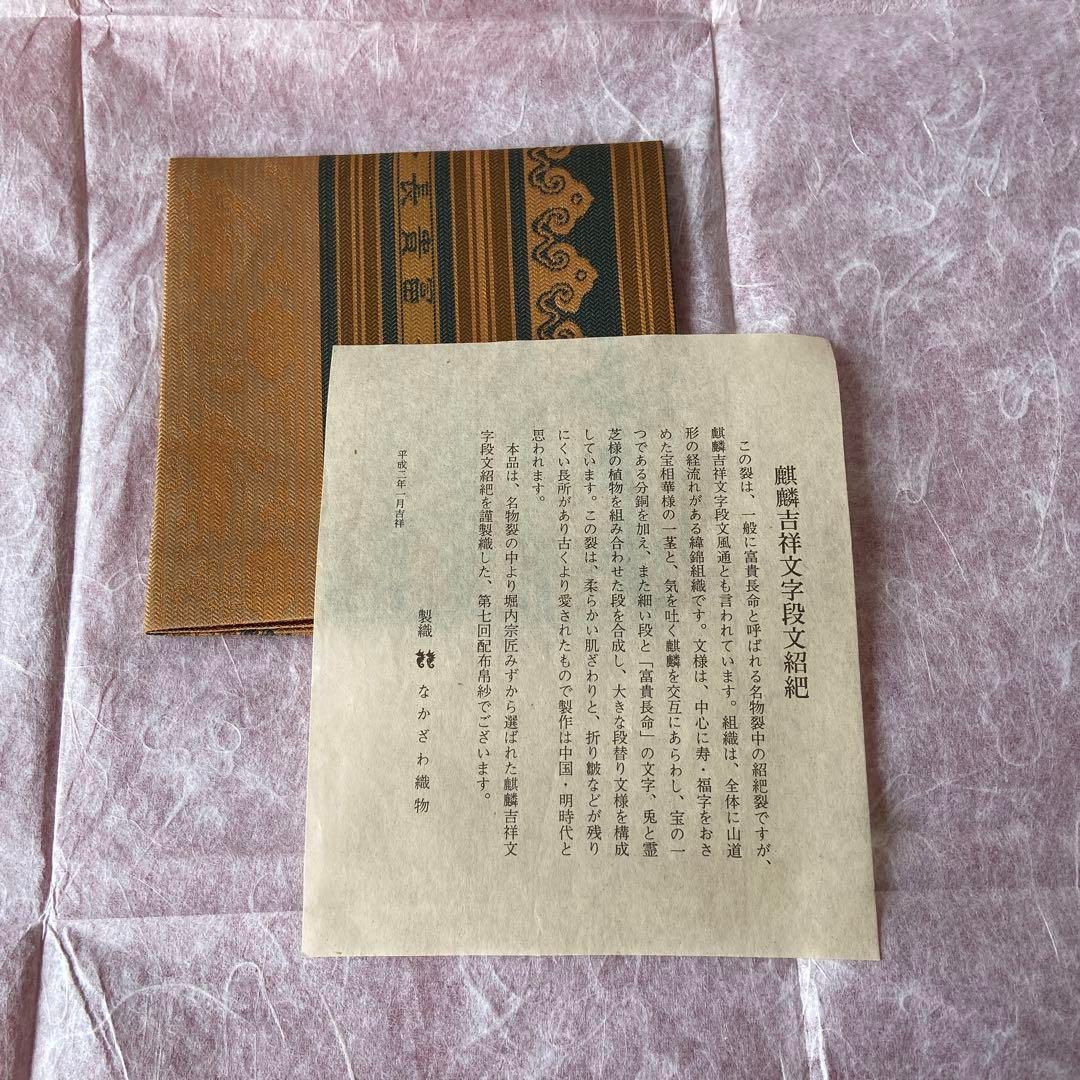 長
貴
富
麒麟吉祥文字段文紹紦
この裂は、一般に富貴長命と呼ばれる名物裂中の紹紦裂ですが、
麒麟吉祥文字段文風通とも言われています。組織は、全体に山道
形の経流れがある緯錦組織です。文様は、中心に寿・福字をおさ
めた宝相華様の一茎と、気を吐く麒麟を交互にあらわし、宝の一
つである分銅を加え、また細い段と「富貴長命」の文字、兎と霊
芝様の植物を組み合わせた段を合成し、大きな段替り文様を構成
しています。この裂は、柔らかい肌ざわりと、折り皺などが残り
にくい長所があり古くより愛されたもので製作は中国・明時代と
思われます。
本品は、名物裂の中より堀内宗匠みずから選ばれた麒麟吉祥文
字段文紹紦を謹製織した、第七回配布帛紗でございます。
平成二年一月吉祥
製織 なかざわ織物